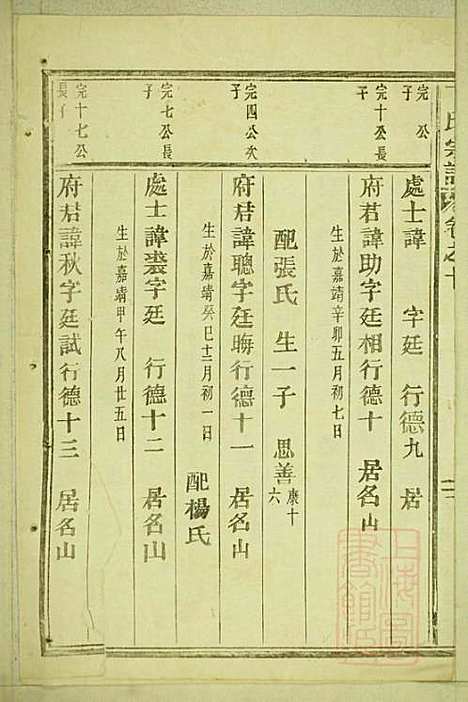 氏宗譜 卷之十
完 公
子
處士諱 字廷 行德九 居
完十公長
子
府君諱助字廷相行德十 居名山
生於嘉靖辛卯五月初七日
配張氏 生一子 思善 康十
六
完四公次
子
府君諱聰字廷晦行德十一 居名山
生於嘉靖癸巳十二月初一日
配楊氏
完七公長
子
處士諱裘字廷 行德十二 居名山
生於嘉靖甲午八月廿五日
完十七公
長子
府君諱秋字廷試行德十三 居名山
上海圖
書館藏